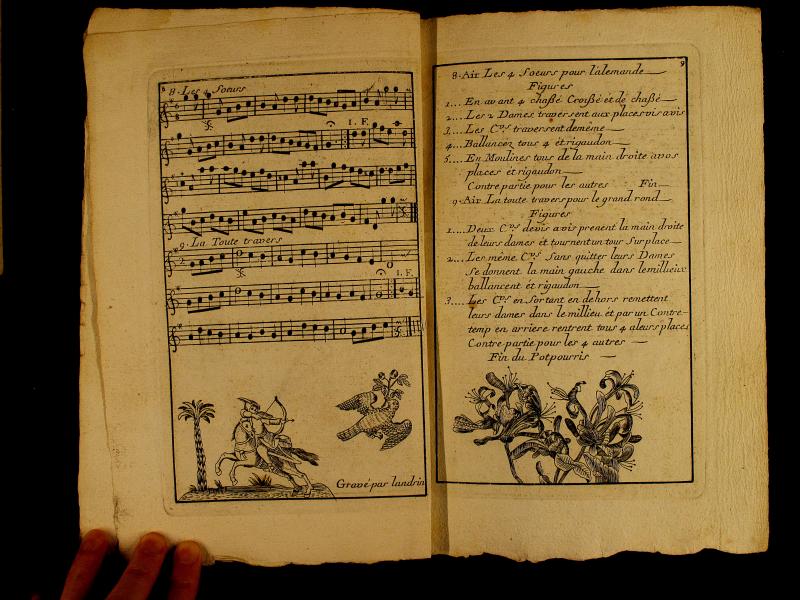 8
8. Les 4 Soeurs
1. F.
9. La Toute travers
1. F.
Gravé par landrin
9
8. Air Les 4 Soeurs pour l'alemande
Figures
1... En avant 4 chaßé Croißé et de chaßé
2... Les 2 Dames traversent aux places vis avis
3... Les C.rs traversent de méme
4... Ballancez tous 4 ét rigaudon
5... En Moulines tous de la main droite avos
places ét rigaudon
Contre partie pour les autres Fin
9. Air La toute travers pour le grand rond
Figures
1... Deux C.rs devis avis prenent la main droite
de leurs dames ét tournent un tour Sur place
2... Les méme C.rs Sans quitter leurs Dames
Se donnent la main gauche dans le millieux
ballancent ét rigaudon
3... Les C.rs en Sortant en dehors remettent
leurs dames dans le millieu ét par un Contre-
temp en arriere rentrent tous 4 aleurs places
Contre partie pour les 4 autres
Fin du Potpourris